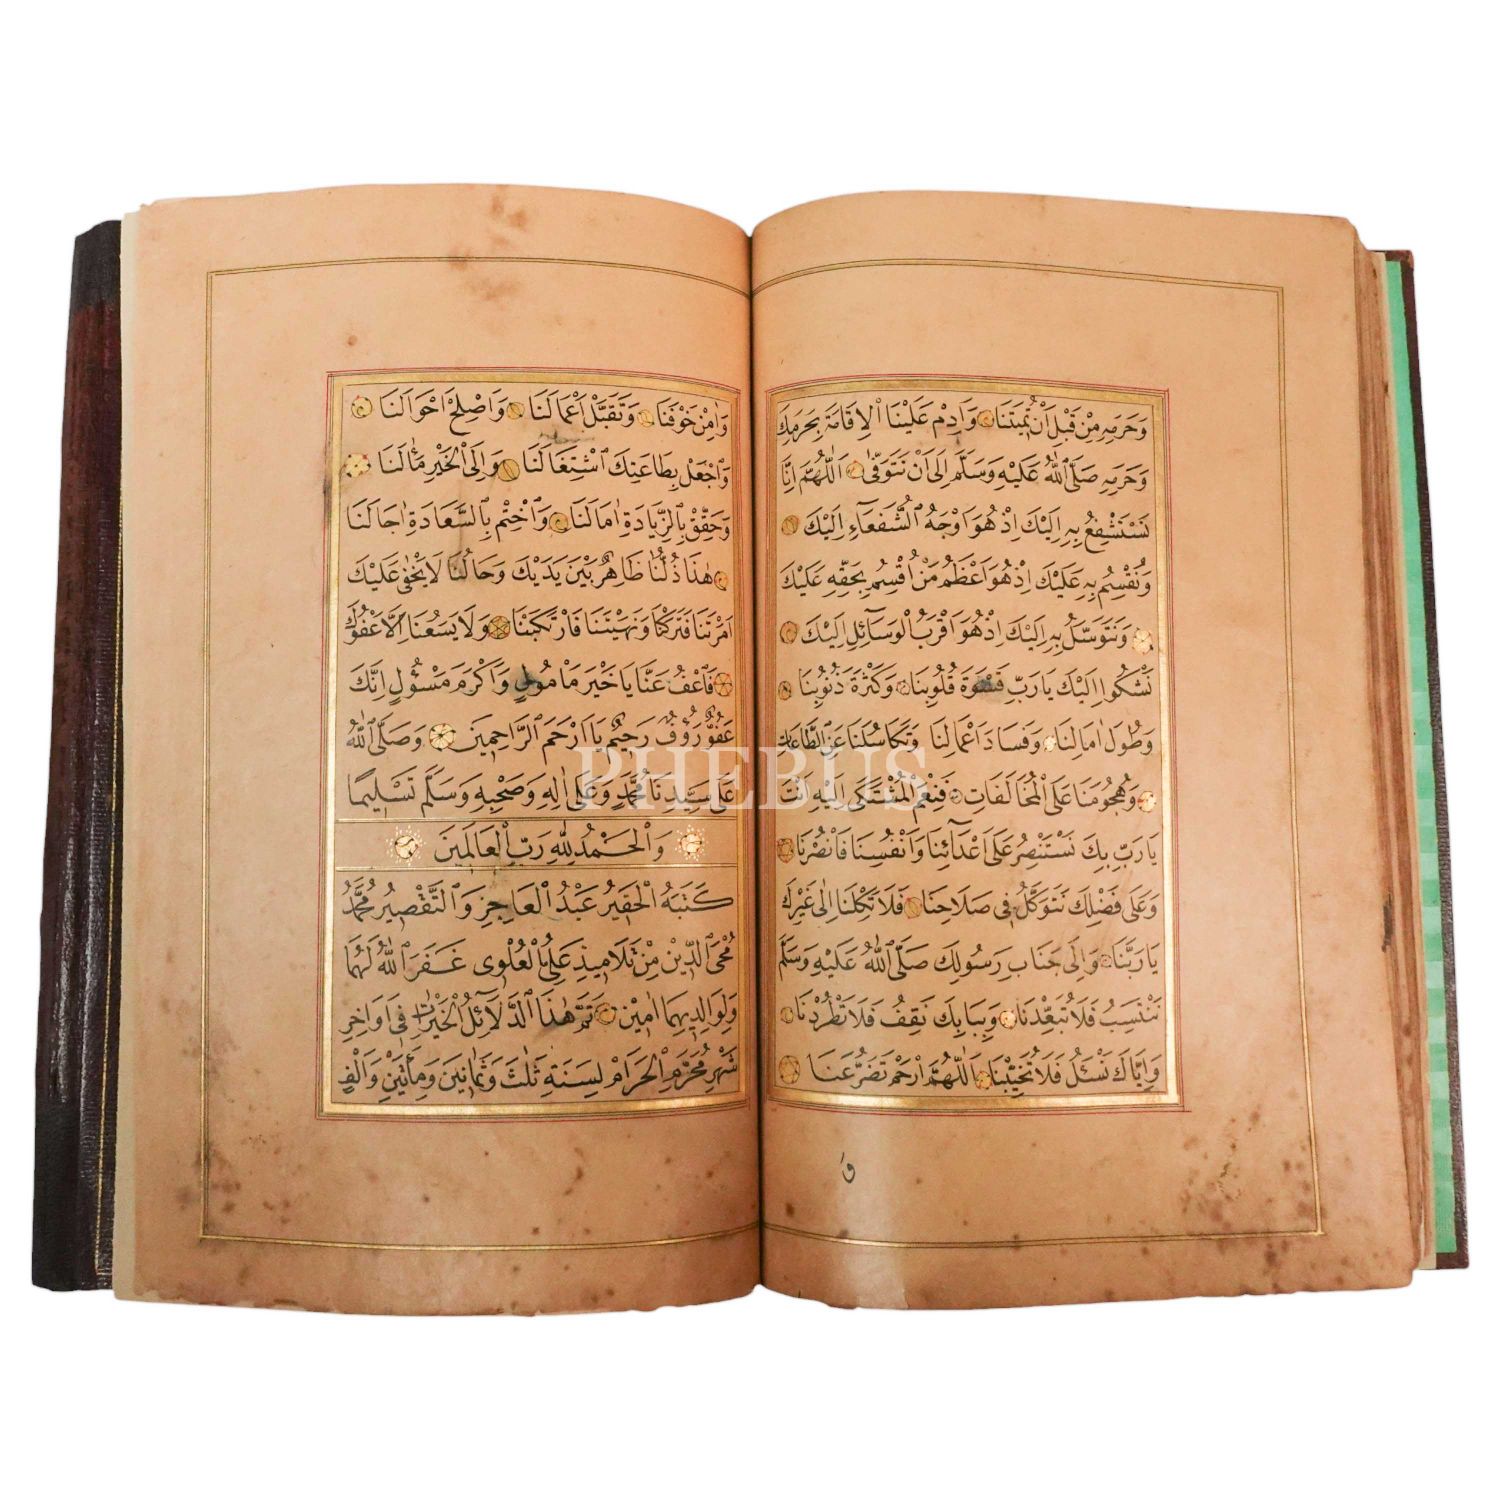 وَحَرَمِهِ مِنْ قَبْلِ اَنْ تُمِيتَنَا وَاَدِمْ عَلَيْنَا الْاِقَامَةَ بِحَرَمِكَ
وَحَرَمِهِ صَلَّى اللّٰهُ عَلَيْهِ وَسَلَّمَ اِلٰى اَنْ نَتَوَفّٰى اَللّٰهُمَّ اِنَّا
نَسْتَشْفِعُ بِهِ اِلَيْكَ اِذْ هُوَ اَوْجَهُ الشُّفَعَآءِ اِلَيْكَ
وَنُقْسِمُ بِهِ عَلَيْكَ اِذْ هُوَ اَعْظَمُ مَنْ اُقْسِمُ بِحَقِّهِ عَلَيْكَ
وَنَتَوَسَّلُ بِهِ اِلَيْكَ اِذْ هُوَ اَقْرَبُ الْوَسَآئِلِ اِلَيْكَ
نَشْكُوا اِلَيْكَ يَا رَبِّ قَسْوَةَ قُلُوبِنَا وَكَثْرَةَ ذُنُوبِنَا
وَطُولَ اٰمَالِنَا وَفَسَادَ اَعْمَالِنَا وَتَكَاسُلَنَا عَنِ الطَّاعَاتِ
وَهُجُومَنَا عَلَى الْمُخَالَفَاتِ فَنِعْمَ الْمُشْتَكٰى اِلَيْهِ اَنْتَ
يَا رَبِّ بِكَ نَسْتَنْصِرُ عَلٰى اَعْدَآئِنَا وَاَنْفُسِنَا فَانْصُرْنَا
وَعَلٰى فَضْلِكَ نَتَوَكَّلُ فِي صَلَاحِنَا فَلَا تَكِلْنَا اِلٰى غَيْرِكَ
يَا رَبَّنَا وَاِلٰى جَنَابِ رَسُولِكَ صَلَّى اللّٰهُ عَلَيْهِ وَسَلَّمَ
نَنْتَسِبُ فَلَا تُبَعِّدْنَا وَبِبَابِكَ نَقِفُ فَلَا تَطْرُدْنَا
وَاِيَّاكَ نَسْئَلُ فَلَا تُخَيِّبْنَا اَللّٰهُمَّ ارْحَمْ تَضَرُّعَنَا
وَاٰمِنْ خَوْفَنَا وَتَقَبَّلْ اَعْمَالَنَا وَاَصْلِحْ اَحْوَالَنَا
وَاجْعَلْ بِطَاعَتِكَ اشْتِغَالَنَا وَاِلَى الْخَيْرِ مَاٰلَنَا
وَحَقِّقْ بِالزِّيَادَةِ اٰمَالَنَا وَاخْتِمْ بِالسَّعَادَةِ اٰجَالَنَا
هٰذَا ذُلُّنَا ظَاهِرٌ بَيْنَ يَدَيْكَ وَحَالُنَا لَا يَخْفٰى عَلَيْكَ
اَمَرْتَنَا فَتَرَكْنَا وَنَهَيْتَنَا فَارْتَكَبْنَا وَلَا يَسَعُنَا اِلَّا عَفْوُكَ
فَاعْفُ عَنَّا يَا خَيْرَ مَاْمُولٍ وَاَكْرَمَ مَسْؤُلٍ اِنَّكَ
عَفُوٌّ رَؤُفٌ رَحِيمٌ يَا اَرْحَمَ الرَّاحِمِينَ وَصَلَّى اللّٰهُ
عَلٰى سَيِّدِنَا مُحَمَّدٍ وَعَلٰى اٰلِهِ وَصَحْبِهِ وَسَلَّمَ تَسْلِيمًا
وَالْحَمْدُ لِلّٰهِ رَبِّ الْعَالَمِينَ
كَتَبَهُ الْحَقِيرُ عَبْدُ الْعَاجِزِ وَالتَّقْصِيرِ مُحَمَّدُ
مُحْيِ الدِّيْنِ مِنْ تَلَامِيذِ عَلِيُّ الْعُلْوِي غَفَرَ اللّٰهُ لَهُمَا
وَلِوَالِدِيهِمَا اٰمِيْن تَمَّ هٰذَا الدَّلَآئِلُ الْخَيْرَاتِ فِي اَوَاخِرِ
شَهْرِ مُحَرَّمِ الْحَرَامِ لِسَنَةِ ثَلٰثَ وَثَمَانِينَ وَمِأَتَيْنِ وَاَلْفٍ
وَ
PHEBUS